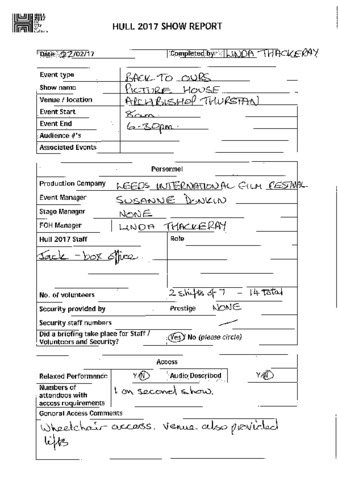 HULL 2017 SHOW REPORT
Date 22/02/17 Completed by LINDA THACKERAY
Event type BACK TO OURS
Show name PICTURE HOUSE
Venue / location ARCHBISHOP THURSTAN
Event Start 8am
Event End 6-30pm.
Audience #'s
Associated Events
Personnel
Production Company LEEDS INTERNATIONAL FILM FESTIVAL
Event Manager SUSANNE
Stage Manager NONE
FOH Manager LINDA THACKERAY
Hull 2017 Staff Role
Jack - box office.
No. of volunteers 2 shifts of 7 - 14 total
Security provided by Prestige NONE
Security staff numbers
Did a briefing take place for Staff / Volunteers and Security? Yes / No (please circle)
Access
Relaxed Performance Y/N Audio Described Y/N
Numbers of
attendees with
access requirements
1 on second show.
General Access Comments
Wheelchair access. Venue also provided
lifts